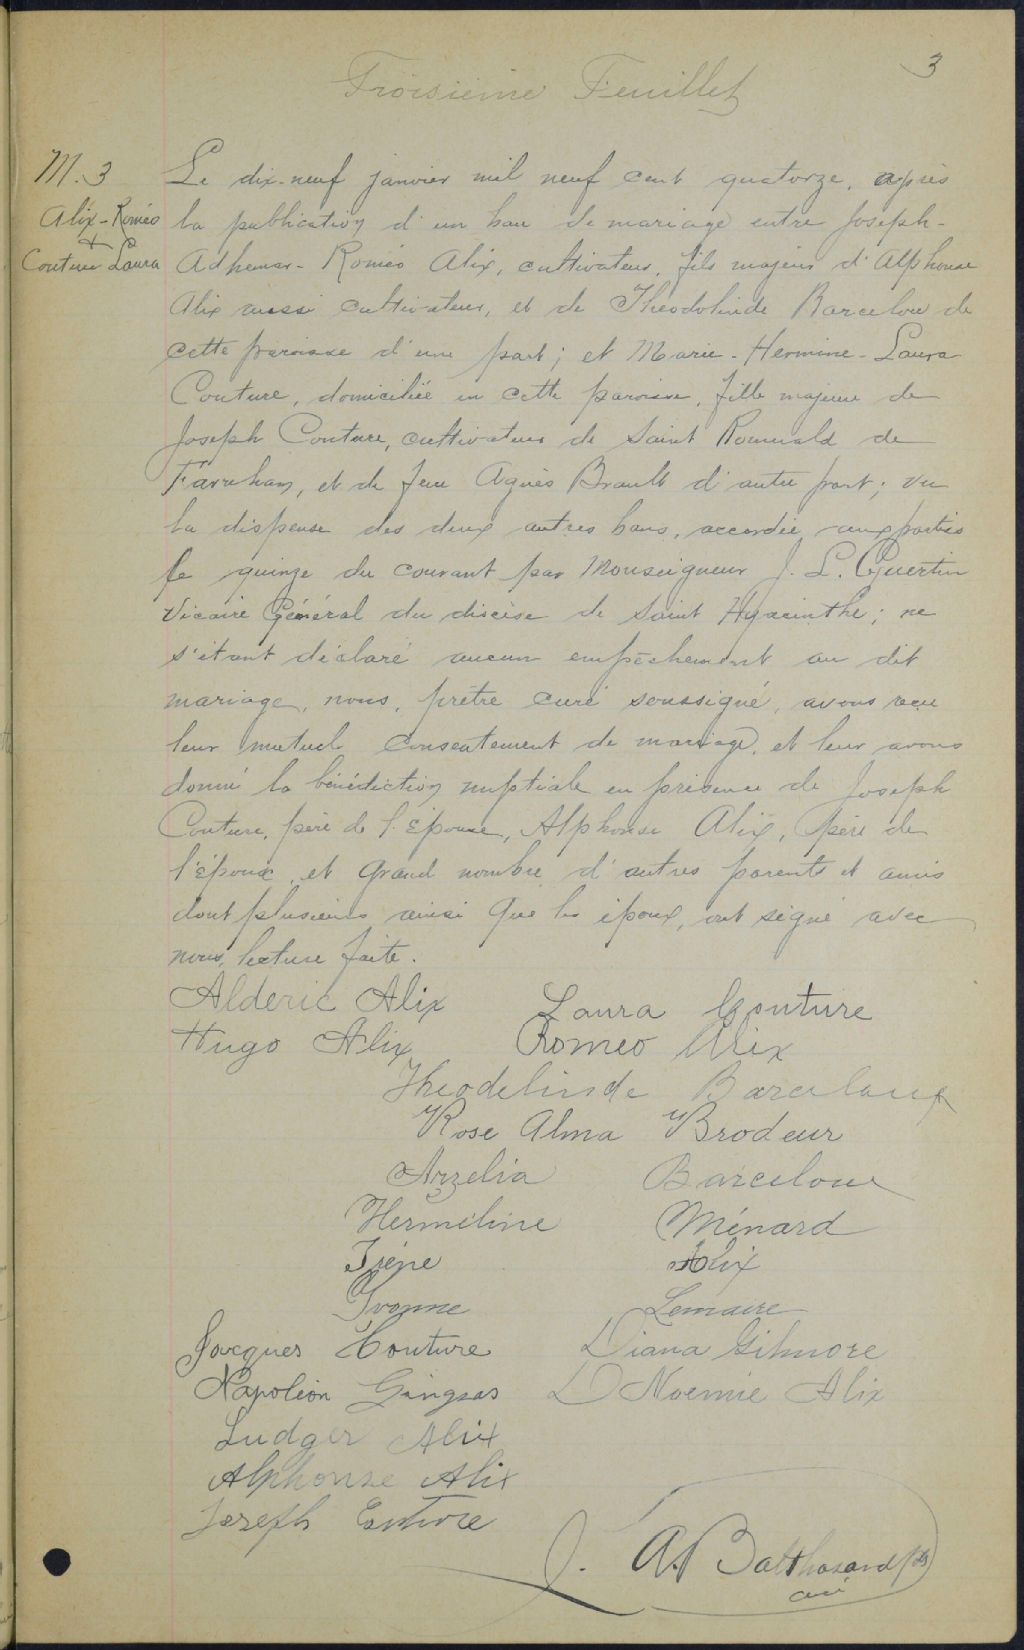 3
Troisième Feuillet
M. 3
Alix-Roméo
+
Couture Laura
Le dix-neuf janvier mil neuf cent quatorze, après
la publication d'un ban de mariage entre Joseph-
Adhemar-Roméo Alix, cultivateur, fils majeur d'Alphonse
Alix aussi cultivateur, et de Théodolinde Barcelou de
cette paroisse d'une part; et Marie-Hermine-Laura
Couture, domiciliée en cette paroisse, fille majeure de
Joseph Couture, cultivateur de Saint Romuald de
Farnham, et de feue Agnès Brault d'autre part; vu
la dispense des deux autres bans, accordée aux parties
le quinze du courant par Monseigneur J. L. Guertin
Vicaire Général du diocèse de Saint Hyacinthe; ne
s'étant déclaré aucun empêchement au dit
mariage, nous, prêtre curé soussigné, avons reçu
leur mutuel consentement de mariage, et leur avons
donné la bénédiction nuptiale en présence de Joseph
Couture, père de l'Épouse, Alphonse Alix, père de
l'Époux, et grand nombre d'autres parents et amis
dont plusieurs ainsi que les époux, ont signé avec
nous, lecture faite.
Alderic Alix Laura Couture
Hugo Alix Romeo Alix
Theodelinde Barceloux
Rose Alma Brodeur
Arzelia Barceloue
Hermeline Ménard
Irène Alix
Yvonne Lemaire
Jacques Couture Diana Gilmore
Napoléon Gingras D Noemie Alix
Ludger Alix
Alphonse Alix
Joseph Couture
J. A. Balthazard ptre
curé